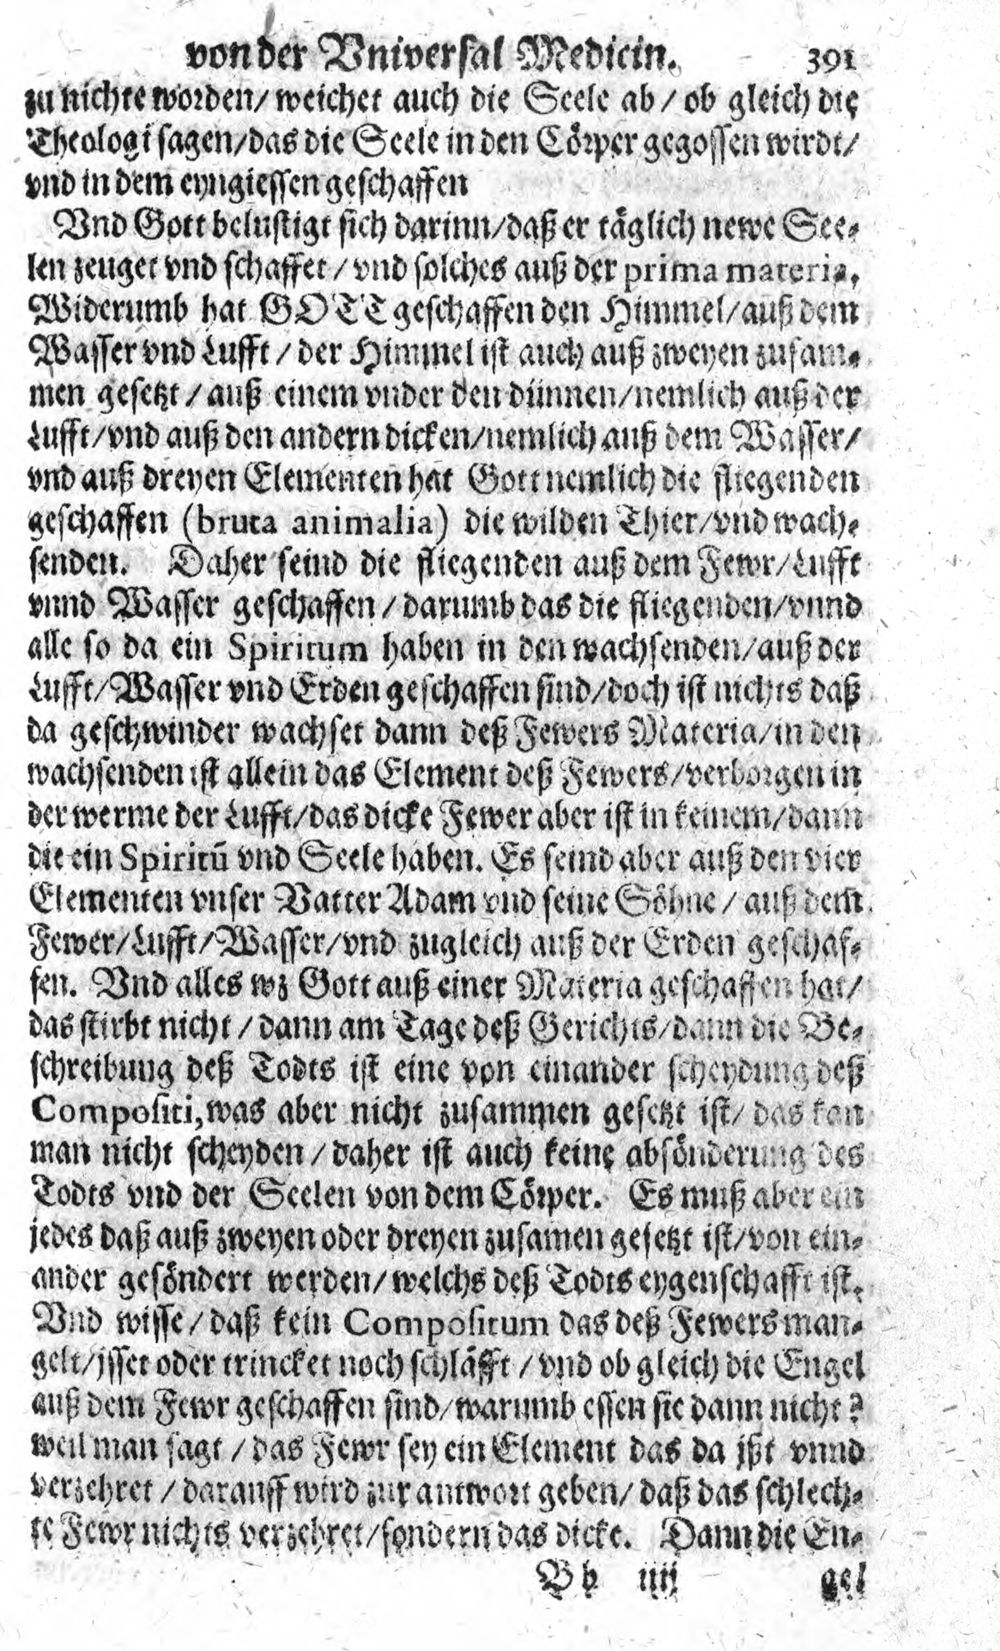 von der Vniversal Medicin. 391
zu nichte worden/ weichet auch die Seele ab / ob gleich die
Theologi sagen/das die Seele in den Cörper gegossen wirdt/
vnd in dem eyngiessen geschaffen
Vnd Gott belustigt sich darinn/daß er täglich newe See-
len zeuget vnd schaffet / vnd solches auß der prima materia,
Widerumb hat GOTT geschaffen den Himmel/auß dem
Wasser vnd Lufft / der Himmel ist auch auß zweyen zusam-
men gesetzt / auß einem vnder den dünnen/nemlich auß der
Lufft/vnd auß den andern dicken/nemlich auß dem Wasser/
vnd auß dreyen Elementen hat Gott nemlich die fliegenden
geschaffen (bruta animalia) die wilden Thier/vnd wach-
senden. Daher seind die fliegenden auß dem Fewr/Lufft
vnnd Wasser geschaffen / darumb das die fliegenden/vnnd
alle so da ein Spiritum haben in den wachsenden/auß der
Lufft/Wasser vnd Erden geschaffen sind/doch ist nichts daß
da geschwinder wachset dann deß Fewers Materia/in den
wachsenden ist allein das Element deß Fewers/verborgen in
der werme der Lufft/das dicke Fewer aber ist in keinem/dann
die ein Spiritū vnd Seele haben. Es seind aber auß den vier
Elementen vnser Vatter Adam vnd seine Söhne / auß dem
Fewer/Lufft/Wasser/vnd zugleich auß der Erden geschaf-
fen. Vnd alles wz Gott auß einer Materia geschaffen hat/
das stirbt nicht / dann am Tage deß Gerichts/dann die Be-
schreibung deß Todts ist eine von einander scheydung deß
Compositi, was aber nicht zusammen gesetzt ist/ das kan
man nicht scheyden / daher ist auch keine absönderung des
Todts vnd der Seelen von dem Cörper. Es muß aber ein
jedes daß auß zweyen oder dreyen zusamen gesetzt ist/von ein-
ander gesöndert werden/welchs deß Todts eygenschafft ist.
Vnd wisse / daß kein Compositum das deß Fewers man-
gelt/isset oder trincket noch schläfft / vnd ob gleich die Engel
auß dem Fewr geschaffen sind/warumb essen sie dann nicht?
weil man sagt / das Fewr sey ein Element das da ißt vnnd
verzehret / darauff wird zur antwort geben/ daß das schlech-
te Fewr nichts verzehret/sondern das dicke. Dann die En-
Bb iiij gel